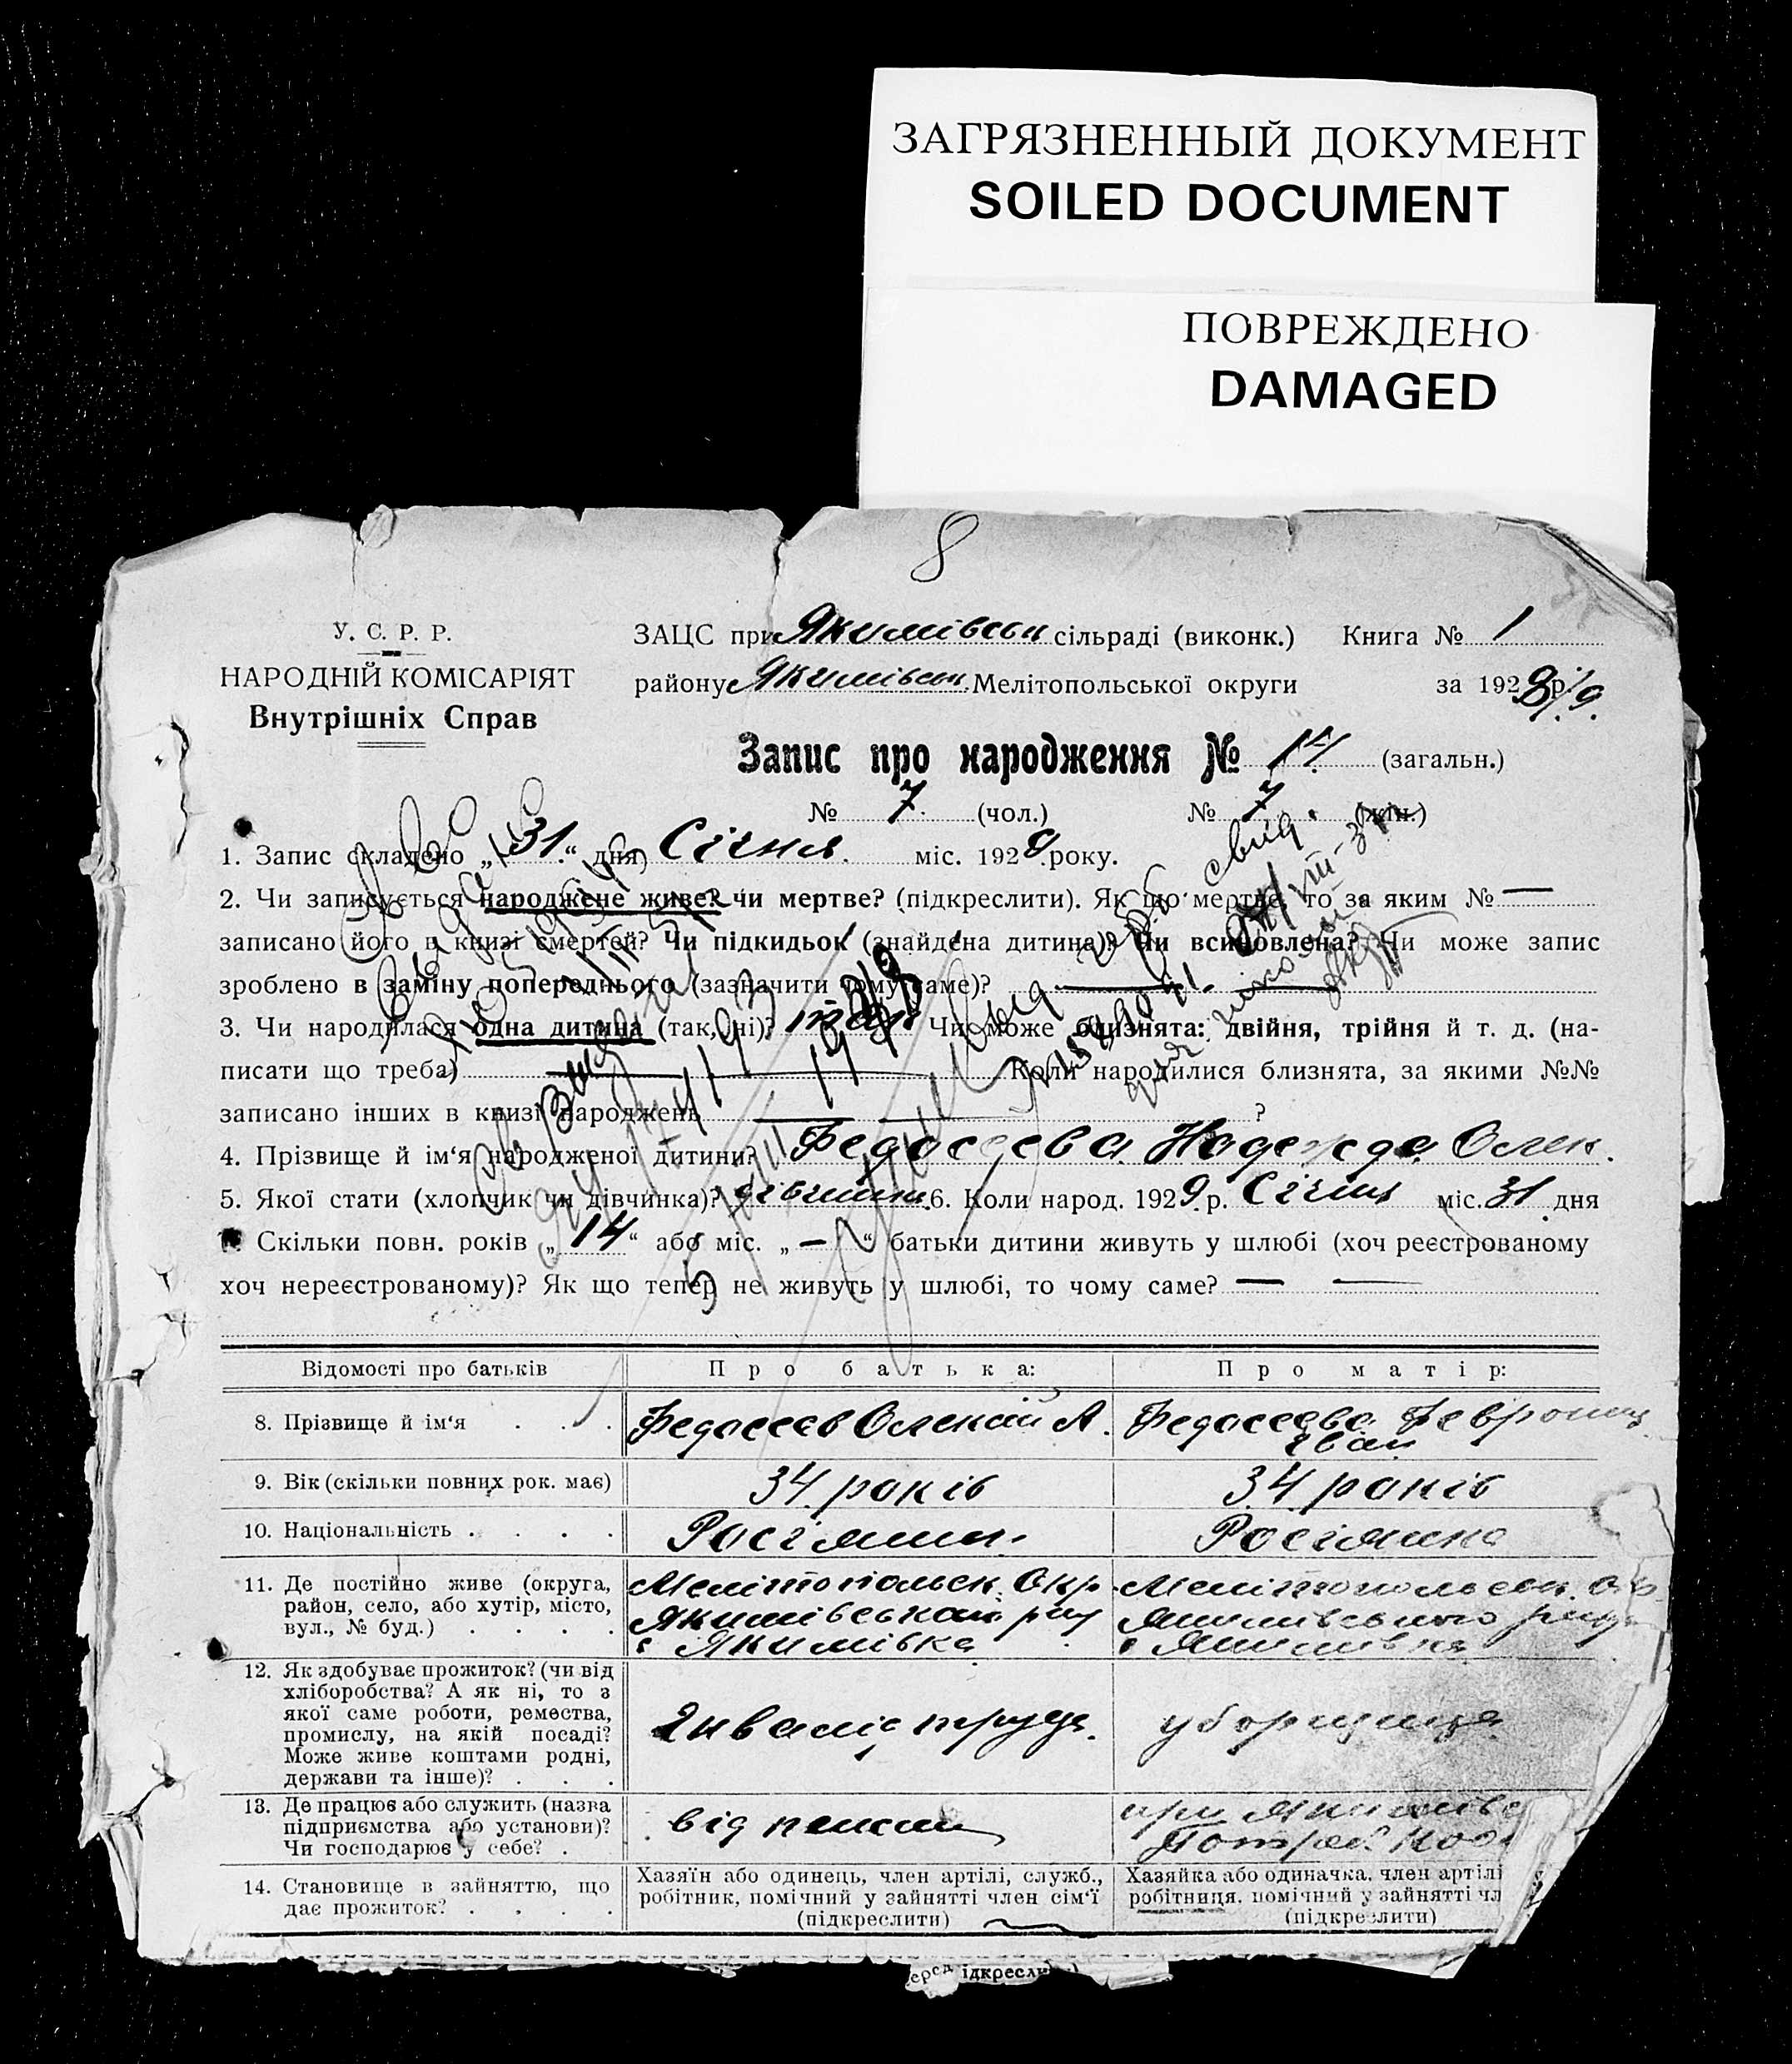 ЗАГРЯЗНЕННЫЙ ДОКУМЕНТ
SOILED DOCUMENT
ПОВРЕЖДЕНО
DAMAGED
8
У. С. Р. Р.
НАРОДНІЙ КОМІСАРІЯТ
Внутрішніх Справ
ЗАЦС при Якимівськ сільраді (виконк.) Книга № 1
району Якимівськ. Мелітопольської округи за 1928/9 р.
Запис про народження № 14 (загальн.)
№ 7. (чол.) № 7 (жін.)
1. Запис складено „31.“ дня Січня. міс. 1929 року.
2. Чи записується народжене живе? чи мертве? (підкреслити). Як що мертве, то за яким № —
записано його в книзі смертей? Чи підкидьок (знайдена дитина)? Чи всиновлена? Чи може запис
зроблено в заміну попереднього (зазначити чому саме)?
3. Чи народилася одна дитина (так, ні)? так Чи може близнята: двійня, трійня й т. д. (на-
писати що треба) Коли народилися близнята, за якими №№
записано інших в книзі народжень ?
4. Прізвище й ім‘я народженої дитини? Федосеева Надежда Олек.
5. Якої стати (хлопчик чи дівчинка)? дівчинка 6. Коли народ. 1929 р. Січня міс. 31 дня
7. Скільки повн. років „14“ або міс. „—“ батьки дитини живуть у шлюбі (хоч реєстрованому
хоч нереєстрованому)? Як що тепер не живуть у шлюбі, то чому саме? —
Відомості про батьків Про батька: Про матір:
8. Прізвище й ім‘я Федосеєв Олексій А. Федосеева Феврония
Іван
9. Вік (скільки повних рок. має) 34 років 34 років
10. Національність Росіянин. Росіянка
11. Де постійно живе (округа,
район, село, або хутір, місто,
вул., № буд.)
Мелітопольск. Окр.
Якимівського рну
с Якимівка
Мелітопольськ. Окр.
Якимівського рну
с Якимівка
12. Як здобуває прожиток? (чи від
хліборобства? А як ні, то з
якої саме роботи, ремества,
промислу, на якій посаді?
Може живе коштами родні,
держави та інше)?
Інвалід труда.
уборщица
13. Де працює або служить (назва
підприємства або установи)?
Чи господарює у себе?
від пенсии
при
14. Становище в зайняттю, що
дає прожиток?
Хазяїн або одинець, член артілі, служб.,
робітник, помічний у зайнятті член сім‘ї
(підкреслити)
Хазяйка або одиначка, член артілі
робітниця, помічний у зайнятті чл
(підкреслити)
ідкресл